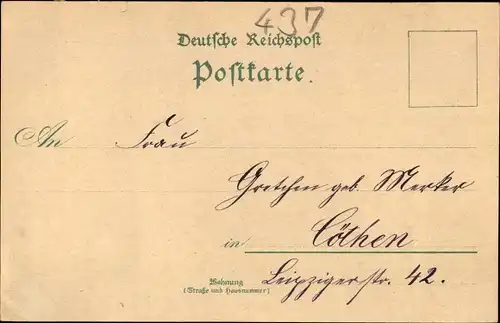 437
Deutsche Reichspost
Postkarte.
An Frau
Gretchen geb. Merker
in Cöthen
Wohnung
(Straße und Hausnummer)
Leipzigerstr. 42.